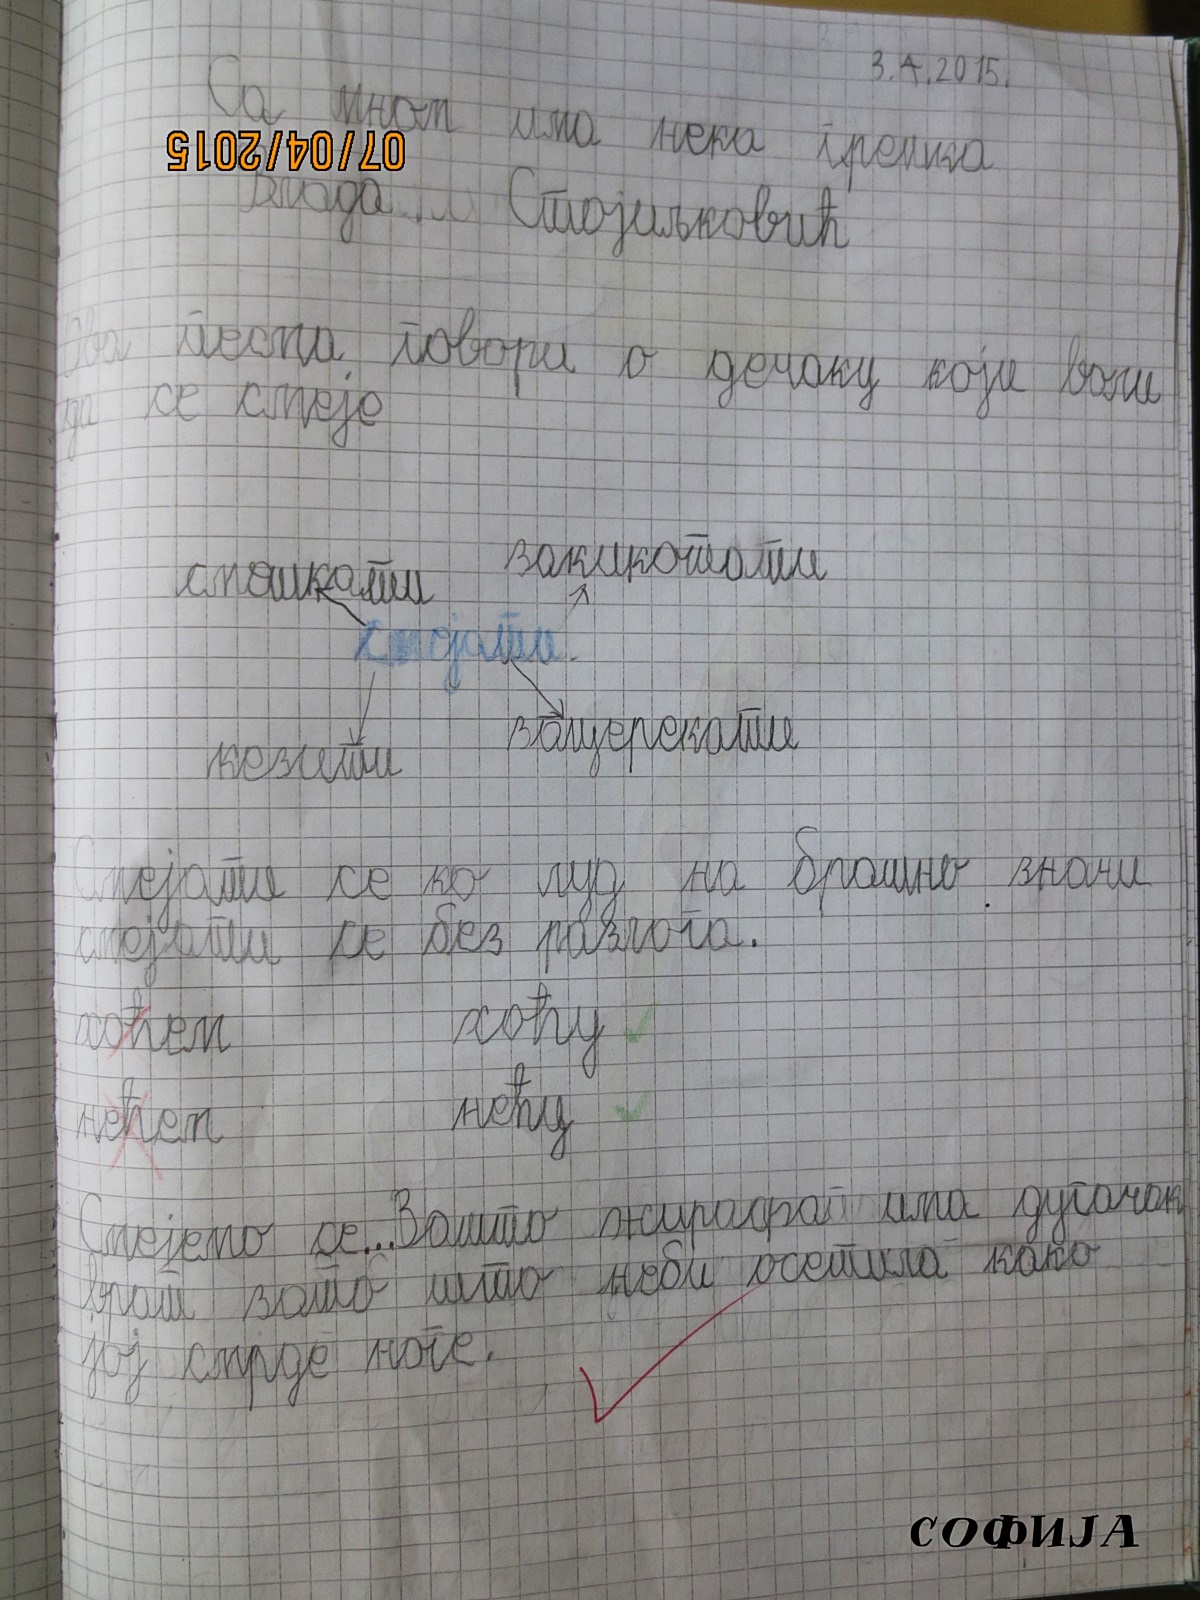 3.4.2015.
Са мном има нека грешка
07/04/2015
Влада Стојиљковић
Ова песма говори о дечаку који воли
да се смеје
смешкати закикотати
смејати
кезити зацерекати
Смејати се ко луд на брашно значи
смејати се без разлога.
хоћем хоћу
нећем нећу
Смејемо се... Зашто жирафа има дугачак
врат зато што неби осетила како
јој смрде ноге.
СОФИЈА